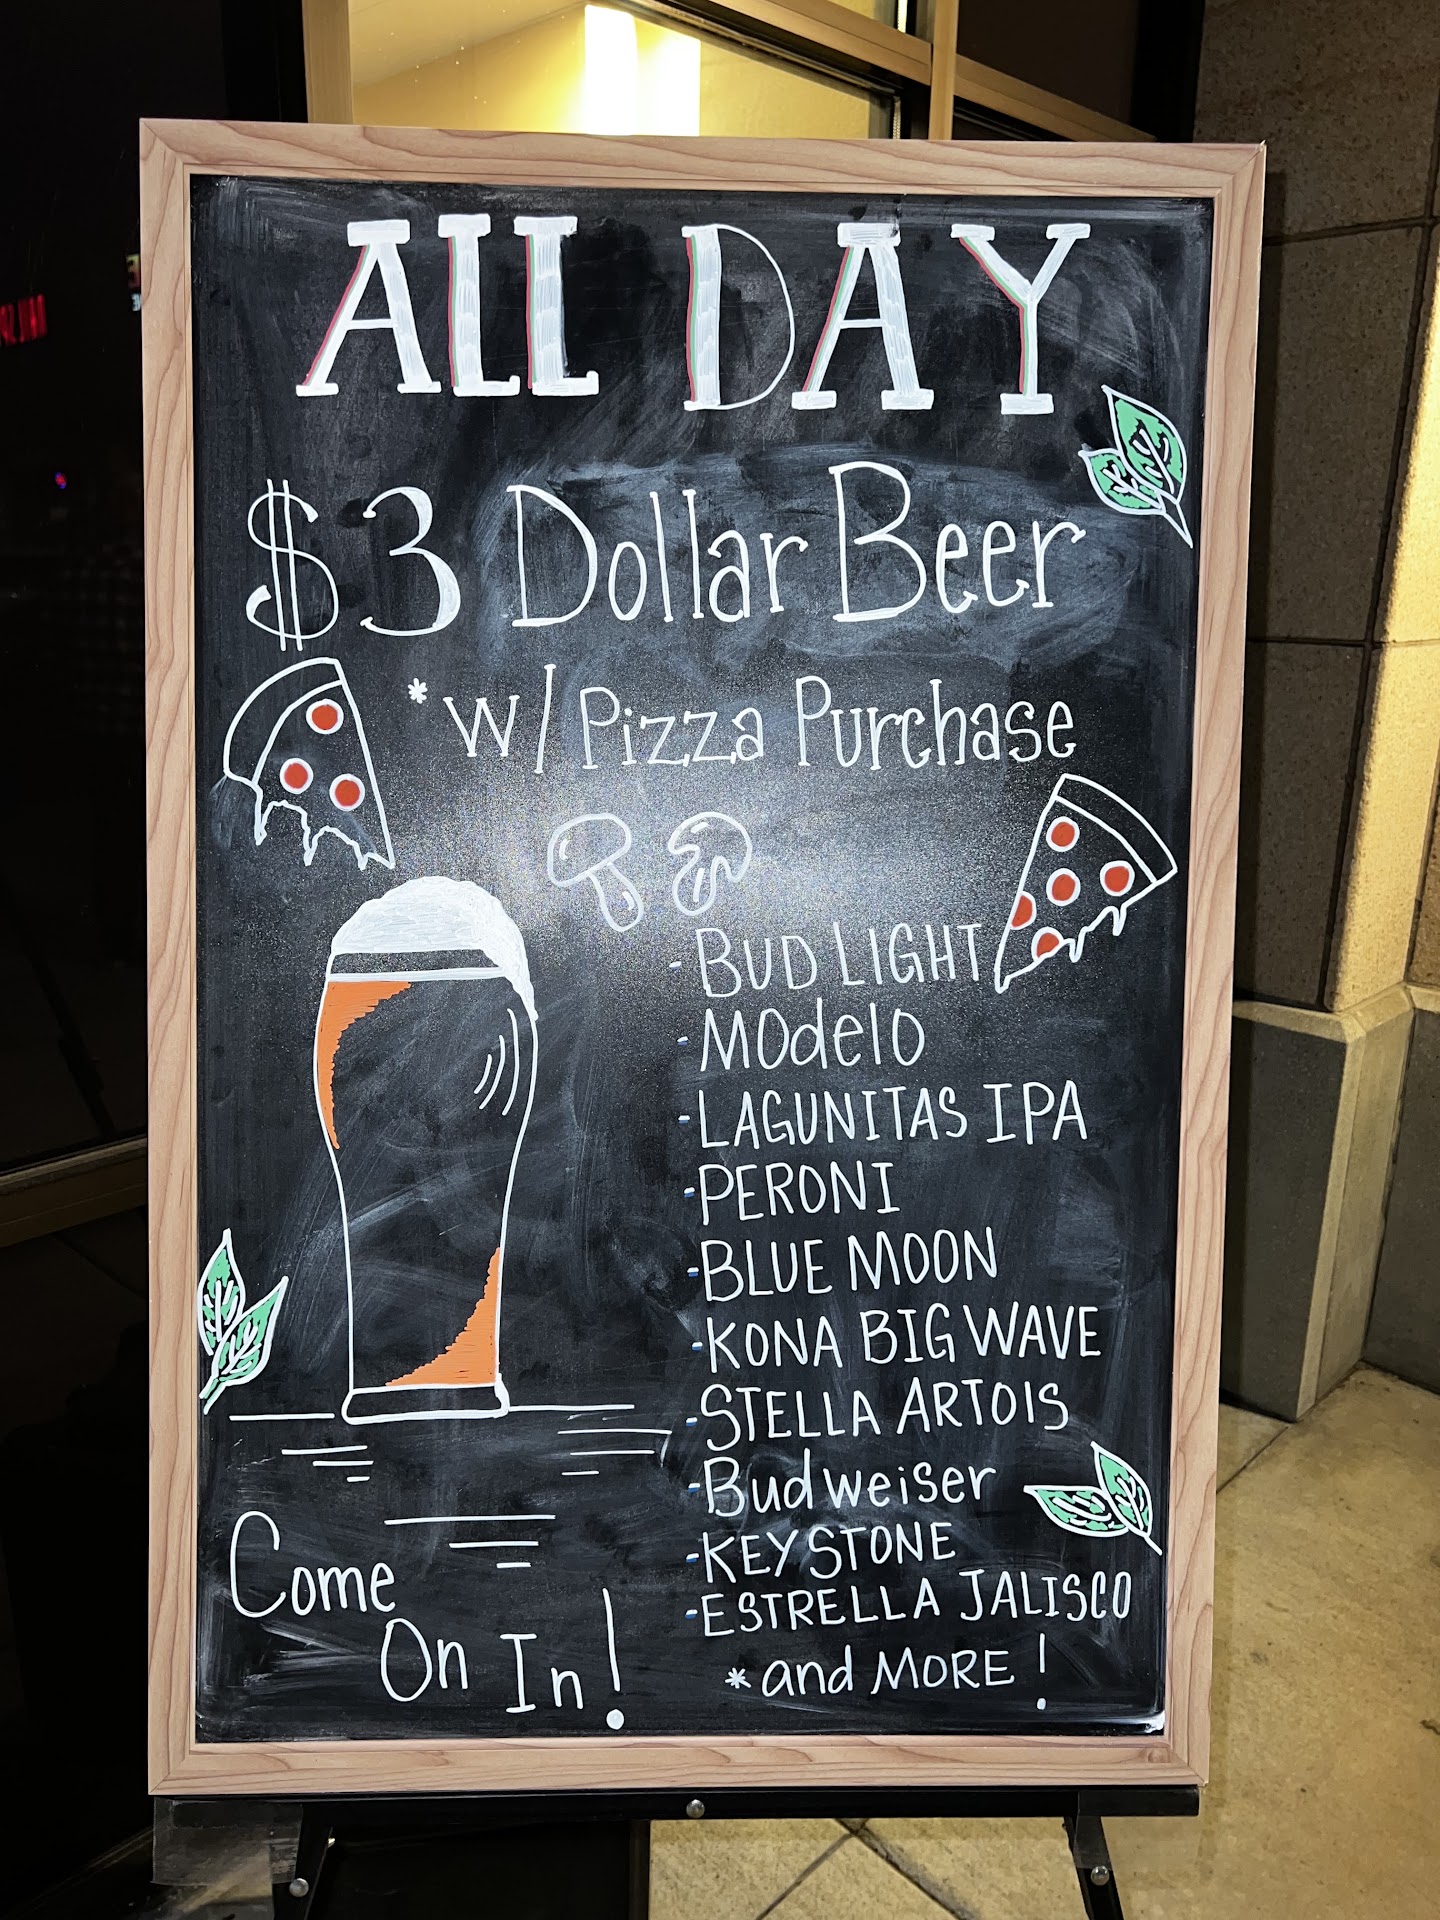 ALL DAY
$3 Dollar Beer
*w/ Pizza Purchase
- BUD LIGHT
- MOdelO
- LAGUNITAS IPA
- PERONI
- BLUE MOON
- KONA BIG WAVE
- STELLA ARTOIS
- Budweiser
- KEYSTONE
- ESTRELLA JALISCO
* and MORE!
Come
On In!